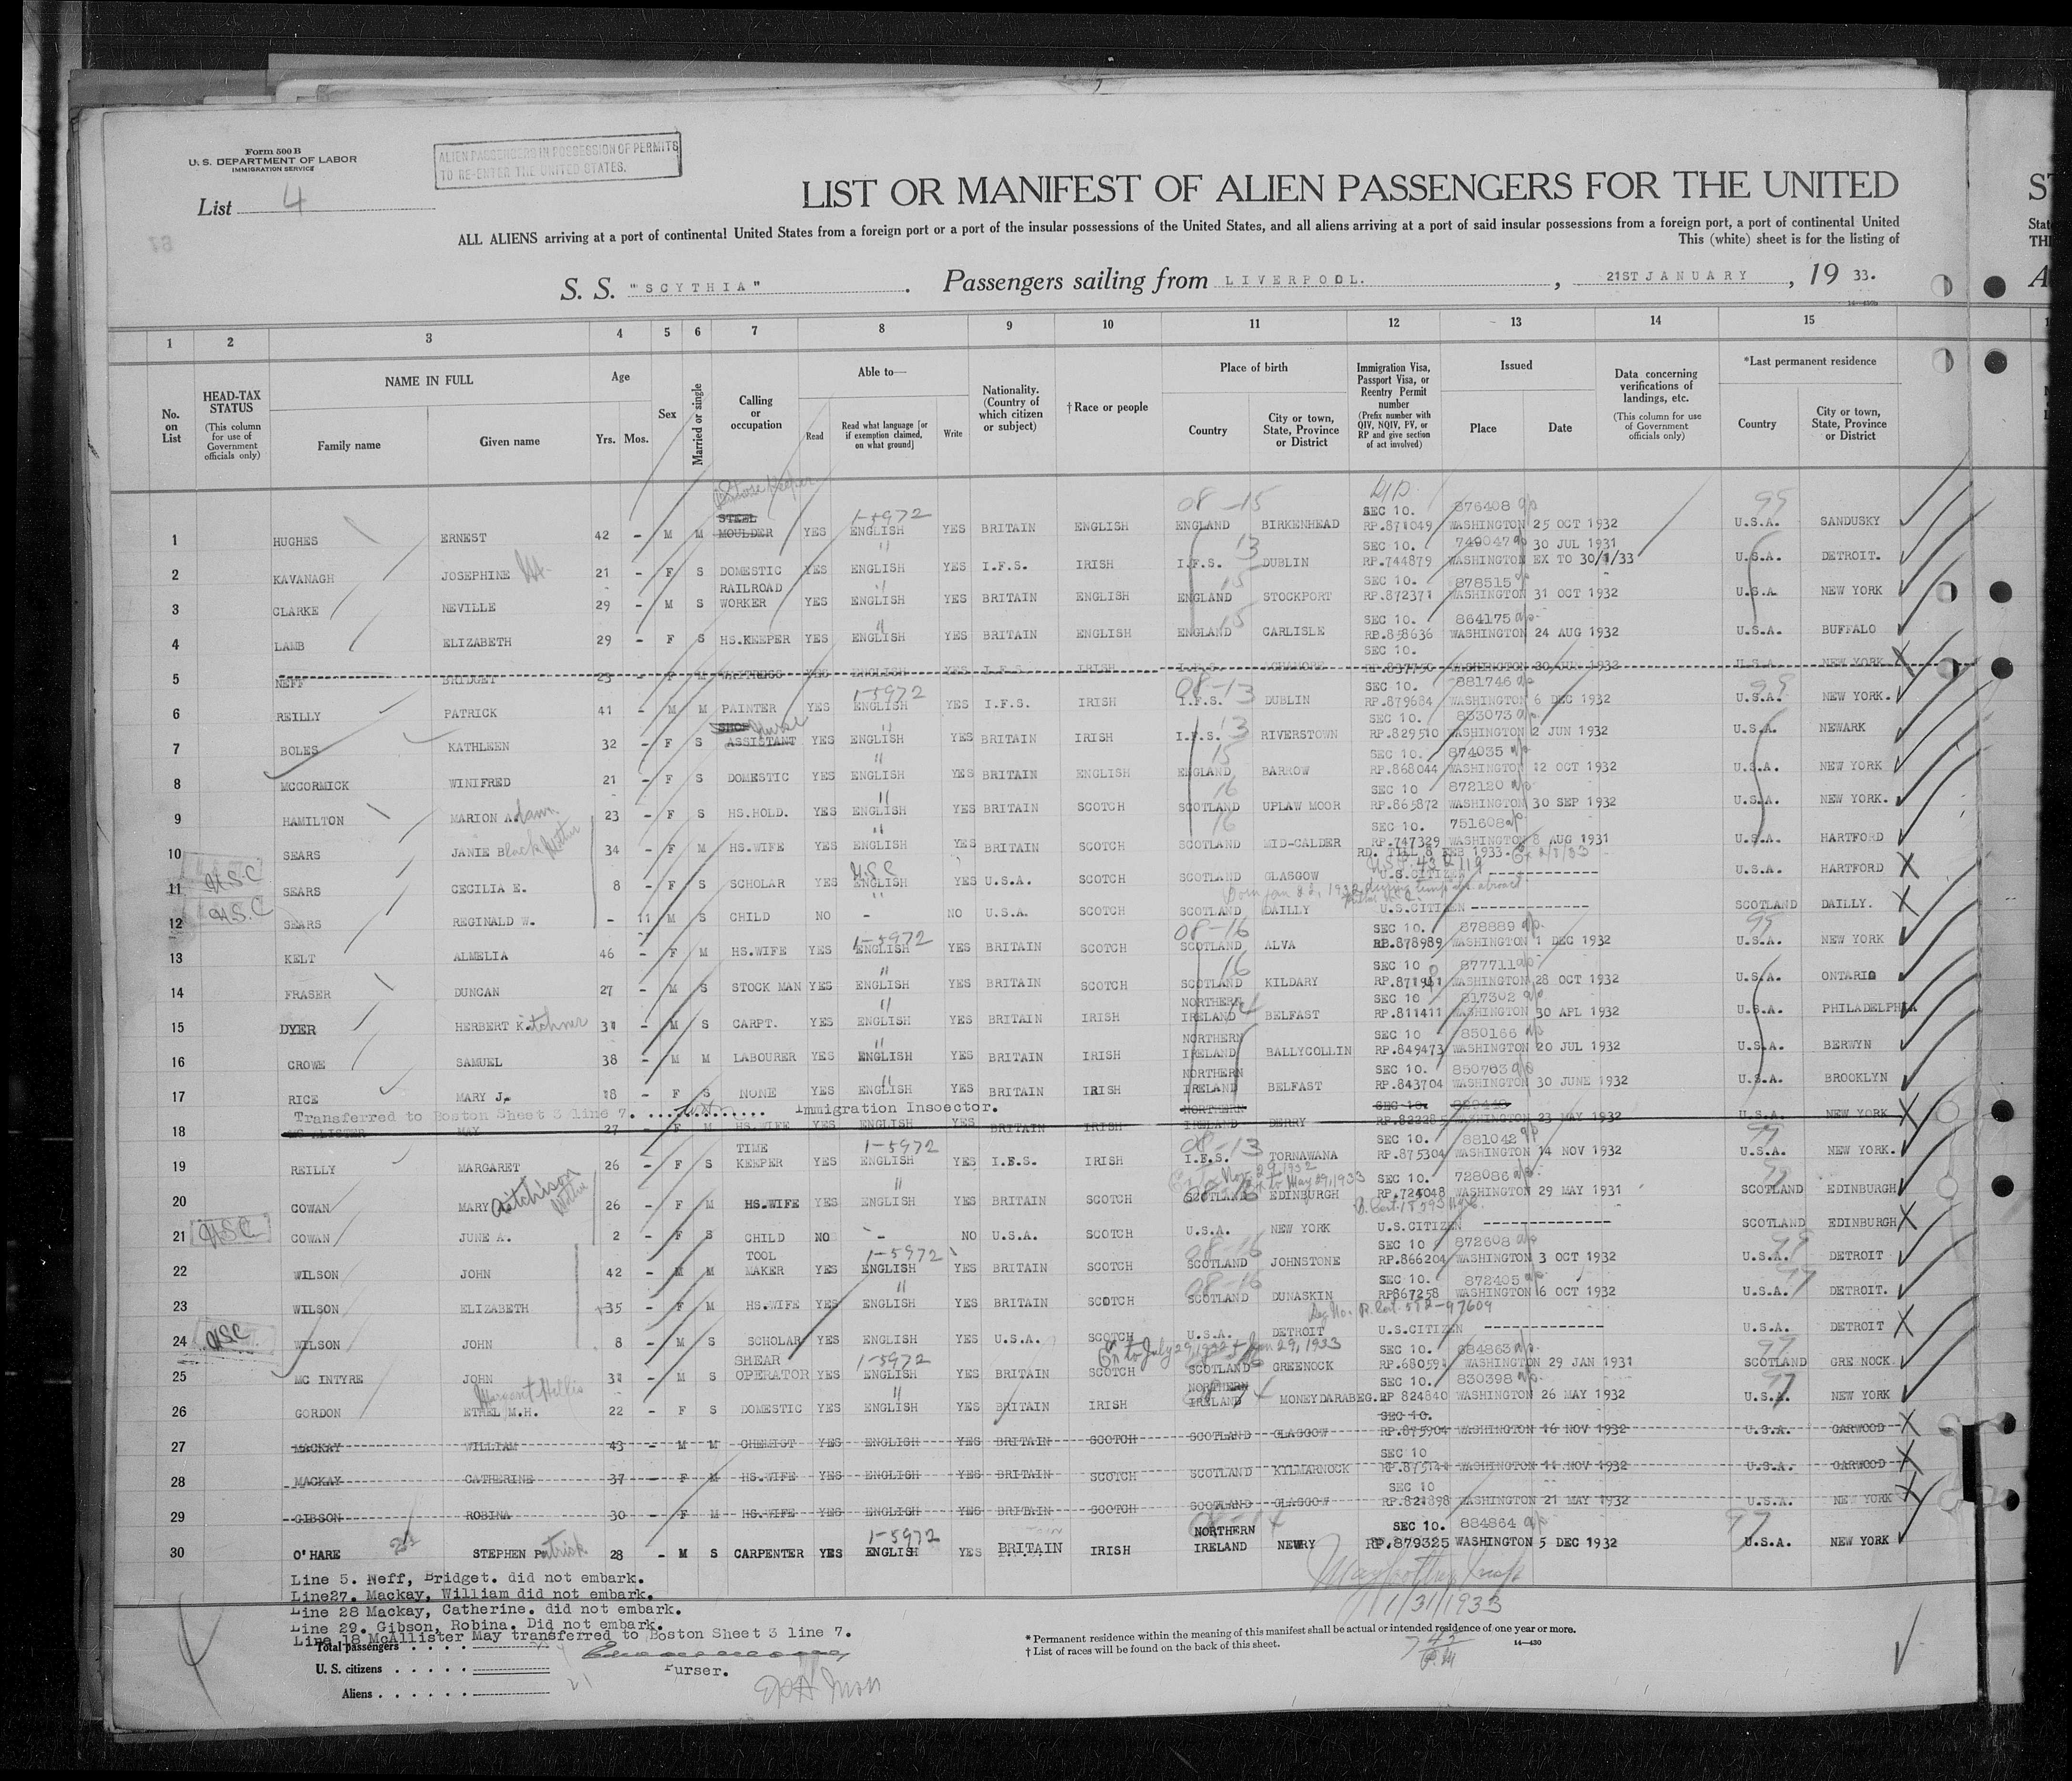 Form 500 B
U. S. DEPARTMENT OF LABOR
IMMIGRATION SERVICE
ALIEN PASSENGERS IN POSSESSION OF PERMITS
TO RE-ENTER THE UNITED STATES.
List 4
LIST OR MANIFEST OF ALIEN PASSENGERS FOR THE UNITED
ALL ALIENS arriving at a port of continental United States from a foreign port or a port of the insular possessions of the United States, and all aliens arriving at a port of said insular possessions from a foreign port, a port of continental United
This (white) sheet is for the listing of
S. S. "SCYTHIA" . Passengers sailing from LIVERPOOL. , 21ST JANUARY , 19 33.
1 2 3 4 5 6 7 8 9 10 11 12 13 14 15
No. on List
HEAD-TAX STATUS (This column for use of Government officials only)
NAME IN FULL
Family name Given name
Age
Yrs. Mos.
Sex
Married or single
Calling or occupation
Able to—
Read Read what language [or if exemption claimed, on what ground] Write
Nationality. (Country of which citizen or subject)
†Race or people
Place of birth
Country City or town, State, Province or District
Immigration Visa, Passport Visa, or Reentry Permit number (Prefix number with QIV, NQIV, PV, or RP and give section of act involved)
Issued
Place Date
Data concerning verifications of landings, etc. (This column for use of Government officials only)
*Last permanent residence
Country City or town, State, Province or District
Store Keeper 1-5972 08-15 SEC 10. 876408 99
1 HUGHES ERNEST 42 - M M STEEL MOULDER YES ENGLISH YES BRITAIN ENGLISH ENGLAND BIRKENHEAD RP.871049 WASHINGTON 25 OCT 1932 U.S.A. SANDUSKY
" 13 SEC 10. 749047 30 JUL 1931
2 KAVANAGH JOSEPHINE 21 - F S DOMESTIC YES ENGLISH YES I.F.S. IRISH I.F.S. DUBLIN RP.744879 WASHINGTON EX TO 30/1/33 U.S.A. DETROIT.
" 15 SEC 10. 878515
3 CLARKE NEVILLE 29 - M S RAILROAD WORKER YES ENGLISH YES BRITAIN ENGLISH ENGLAND STOCKPORT RP.872371 WASHINGTON 31 OCT 1932 U.S.A. NEW YORK
" 15 SEC 10. 864175
4 LAMB ELIZABETH 29 - F S HS.KEEPER YES ENGLISH YES BRITAIN ENGLISH ENGLAND CARLISLE RP.858636 WASHINGTON 24 AUG 1932 U.S.A. BUFFALO
SEC 10.
5 NEFF BRIDGET 23 - F M WAITRESS YES ENGLISH YES I.F.S. IRISH I.F.S. WASHINGTON 30 JUN 1932 U.S.A. NEW YORK
1-5972 08-13 SEC 10. 881746 99
6 REILLY PATRICK 41 - M M PAINTER YES ENGLISH YES I.F.S. IRISH I.F.S. DUBLIN RP.879684 WASHINGTON 6 DEC 1932 U.S.A. NEW YORK.
" 13 SEC 10. 833073
7 BOLES KATHLEEN 32 - F S SHOP ASSISTANT Nurse YES ENGLISH YES BRITAIN IRISH I.F.S. RIVERSTOWN RP.829510 WASHINGTON 2 JUN 1932 U.S.A. NEWARK
" 15 SEC 10. 874035
8 MCCORMICK WINIFRED 21 - F S DOMESTIC YES ENGLISH YES BRITAIN ENGLISH ENGLAND BARROW RP.868044 WASHINGTON 12 OCT 1932 U.S.A. NEW YORK
" 16 SEC 10 872120
9 HAMILTON MARION A.dam. 23 - F S HS.HOLD. YES ENGLISH YES BRITAIN SCOTCH SCOTLAND UPLAW MOOR RP.865872 WASHINGTON 30 SEP 1932 U.S.A. NEW YORK.
" 16 SEC 10. 751608
10 SEARS JANIE Black Mother 34 - F M HS.WIFE YES ENGLISH YES BRITAIN SCOTCH SCOTLAND MID-CALDER RP.747329 WASHINGTON 8 AUG 1931 U.S.A. HARTFORD
RD. TILL 8 FEB 1933.
11 USC SEARS CECILIA E. 8 - F S SCHOLAR YES ENGLISH YES U.S.A. SCOTCH SCOTLAND GLASGOW U.S.CITIZEN U.S.A. HARTFORD
12 U.S.C SEARS REGINALD W. - 11 M S CHILD NO - NO U.S.A. SCOTCH SCOTLAND DAILLY U.S.CITIZEN SCOTLAND DAILLY.
1-5972 08-16 SEC 10. 878889 99
13 KELT ALMELIA 46 - F M HS.WIFE YES ENGLISH YES BRITAIN SCOTCH SCOTLAND ALVA RP.878989 WASHINGTON 1 DEC 1932 U.S.A. NEW YORK
" 16 SEC 10 877711
14 FRASER DUNCAN 27 - M S STOCK MAN YES ENGLISH YES BRITAIN SCOTCH SCOTLAND KILDARY WASHINGTON 28 OCT 1932 U.S.A. ONTARIO
" SEC 10 817302
15 DYER HERBERT Kitchner 31 - M S CARPT. YES ENGLISH YES BRITAIN IRISH NORTHERN IRELAND BELFAST RP.811411 WASHINGTON 30 APL 1932 U.S.A. PHILADELPHIA
" SEC 10 850166
16 CROWE SAMUEL 38 - M M LABOURER YES ENGLISH YES BRITAIN IRISH NORTHERN IRELAND BALLYCOLLIN RP.849473 WASHINGTON 20 JUL 1932 U.S.A. BERWYN
" SEC 10. 850763
17 RICE MARY J. 18 - F S NONE YES ENGLISH YES BRITAIN IRISH NORTHERN IRELAND BELFAST RP.843704 WASHINGTON 30 JUNE 1932 U.S.A. BROOKLYN
Transferred to Boston Sheet 3 line 7. Immigration Insoector.
18 MC ALISTER MAY 27 - F M HS.WIFE YES ENGLISH YES BRITAIN IRISH NORTHERN IRELAND DERRY SEC 10. WASHINGTON 23 MAY 1932 U.S.A. NEW YORK
1-5972 08-13 SEC 10. 881042
19 REILLY MARGARET 26 - F S TIME KEEPER YES ENGLISH YES I.F.S. IRISH I.F.S. TORNAWANA RP.875304 WASHINGTON 14 NOV 1932 U.S.A. NEW YORK.
Nov. 29, 1932
Ex to May 29, 1933
" SEC 10. 728086
20 COWAN MARY Aitchison Mother 26 - F M HS.WIFE YES ENGLISH YES BRITAIN SCOTCH SCOTLAND EDINBURGH RP.724048 WASHINGTON 29 MAY 1931 SCOTLAND EDINBURGH
21 USC COWAN JUNE A. 2 - F S CHILD NO - NO U.S.A. SCOTCH U.S.A. NEW YORK U.S.CITIZEN SCOTLAND EDINBURGH
1-5972 08-16 SEC 10 872608
22 WILSON JOHN 42 - M M TOOL MAKER YES ENGLISH YES BRITAIN SCOTCH SCOTLAND JOHNSTONE RP.866204 WASHINGTON 3 OCT 1932 U.S.A. DETROIT
" 08-16 SEC 10. 872405
23 WILSON ELIZABETH 35 - F M HS.WIFE YES ENGLISH YES BRITAIN SCOTCH SCOTLAND DUNASKIN RP867258 WASHINGTON 6 OCT 1932 U.S.A. DETROIT.
24 USC WILSON JOHN 8 - M S SCHOLAR YES ENGLISH YES U.S.A. SCOTCH U.S.A. DETROIT U.S.CITIZEN U.S.A. DETROIT
1-5972 Ex to July 29, 1932 + Jan 29, 1933 SEC 10. 684863
25 MC INTYRE JOHN 31 - M S SHEAR OPERATOR YES ENGLISH YES BRITAIN SCOTCH SCOTLAND GREENOCK RP.680591 WASHINGTON 29 JAN 1931 SCOTLAND GREENOCK
Margaret Hollis " SEC 10. 830398
26 GORDON ETHEL M.H. 22 - F S DOMESTIC YES ENGLISH YES BRITAIN IRISH NORTHERN IRELAND MONEYDARABEG. RP 824840 WASHINGTON 26 MAY 1932 U.S.A. NEW YORK
SEC 10.
27 MACKAY WILLIAM 43 - M M CHEMIST YES ENGLISH YES BRITAIN SCOTCH SCOTLAND GLASGOW RP.875904 WASHINGTON 16 NOV 1932 U.S.A. GARWOOD
SEC 10
28 MACKAY CATHERINE 37 - F M HS.WIFE YES ENGLISH YES BRITAIN SCOTCH SCOTLAND KILMARNOCK WASHINGTON 11 NOV 1932 U.S.A. GARWOOD
SEC 10
29 GIBSON ROBINA 30 - F M HS.WIFE YES ENGLISH YES BRITAIN SCOTCH SCOTLAND GLASGOW RP.821898 WASHINGTON 21 MAY 1932 U.S.A. NEW YORK
1-5972 SEC 10. 884864
30 O'HARE STEPHEN Patrick 28 - M S CARPENTER YES ENGLISH YES BRITAIN IRISH NORTHERN IRELAND NEWRY RP.879325 WASHINGTON 5 DEC 1932 U.S.A. NEW YORK
Line 5. Neff, Bridget. did not embark.
Line27. Mackay, William did not embark.
Line 28 Mackay, Catherine. did not embark.
Line 29. Gibson, Robina. Did not embark.
Line 18 McAllister May transferred to Boston Sheet 3 line 7.
1/31/1933
Total passengers
U. S. citizens
Aliens 21
Purser.
* Permanent residence within the meaning of this manifest shall be actual or intended residence of one year or more.
† List of races will be found on the back of this sheet.
14—430